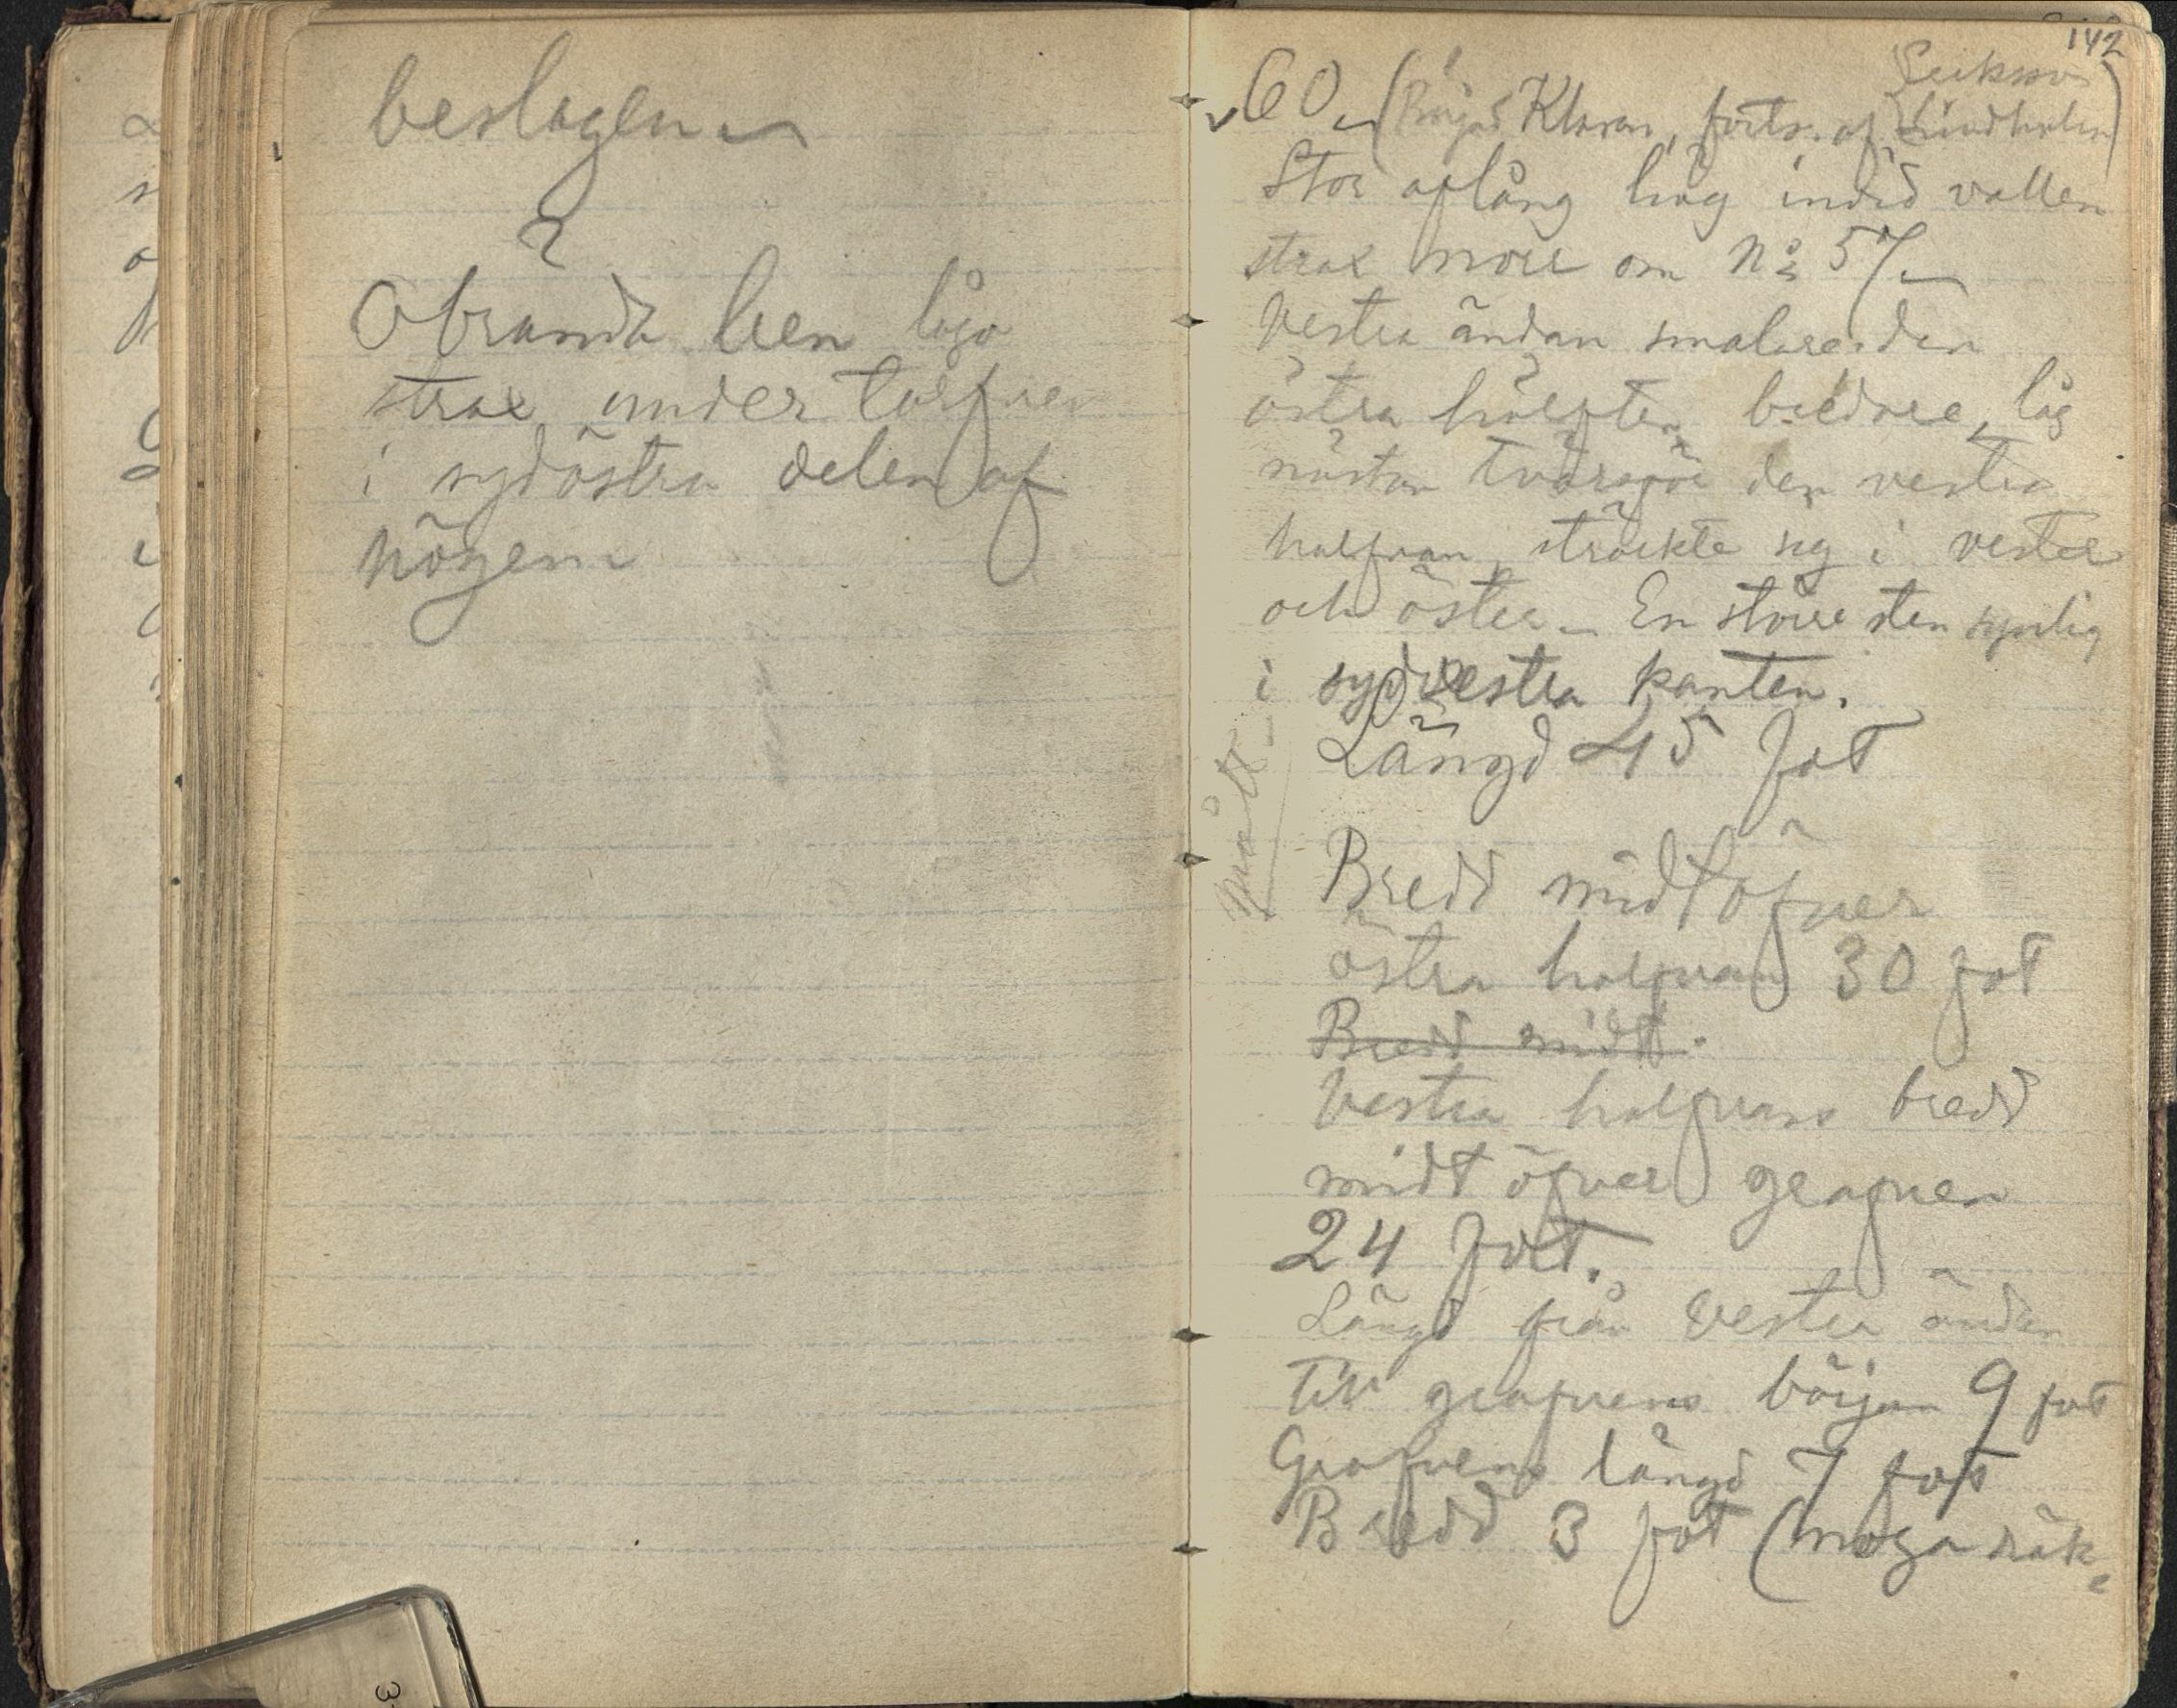 beslagen
Obrända ben lågo
strax under torfven
i sydöstra delen af
högen
142
Eriksson
60 (Början Klaran, forts. af Lindholm)
Stor aflång hög invid vallen
strax norr om No 57
Vestra ändan smalare, den
östra hälften bredare, låg
nästan tvärsför den vestra
halfvan, sträckte sig i vester
och öster – En större sten synlig
i sydvestra kanten.
Längd 45 fot
mått
Bredd midt öfver
östra halfvan 30 fot
Bredd midt
Vestra halfvans bredd
midt öfver grafven
24 fot.
Längd från Vestra ändan
till grafvens början 9 fot
Grafvens längd 7 fot
Bredd 3 fot (noga räk-